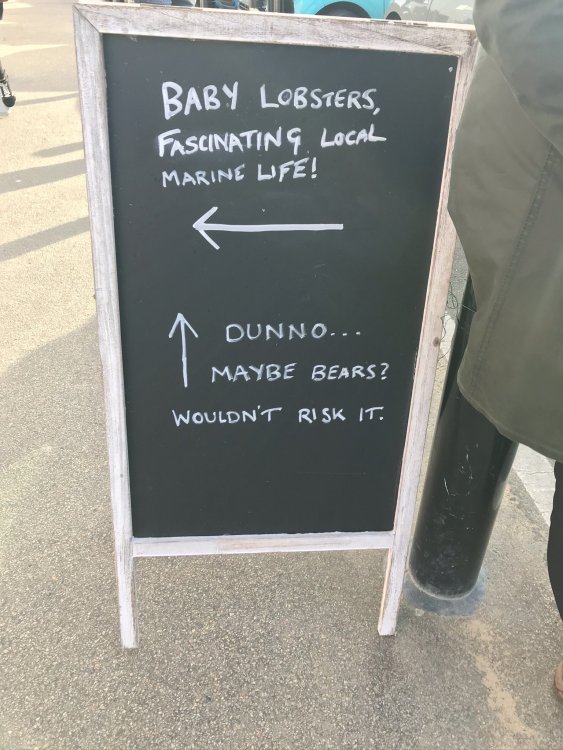 BABY LOBSTERS,
FASCINATING LOCAL
MARINE LIFE!
←
↑ DUNNO...
MAYBE BEARS?
WOULDN'T RISK IT.